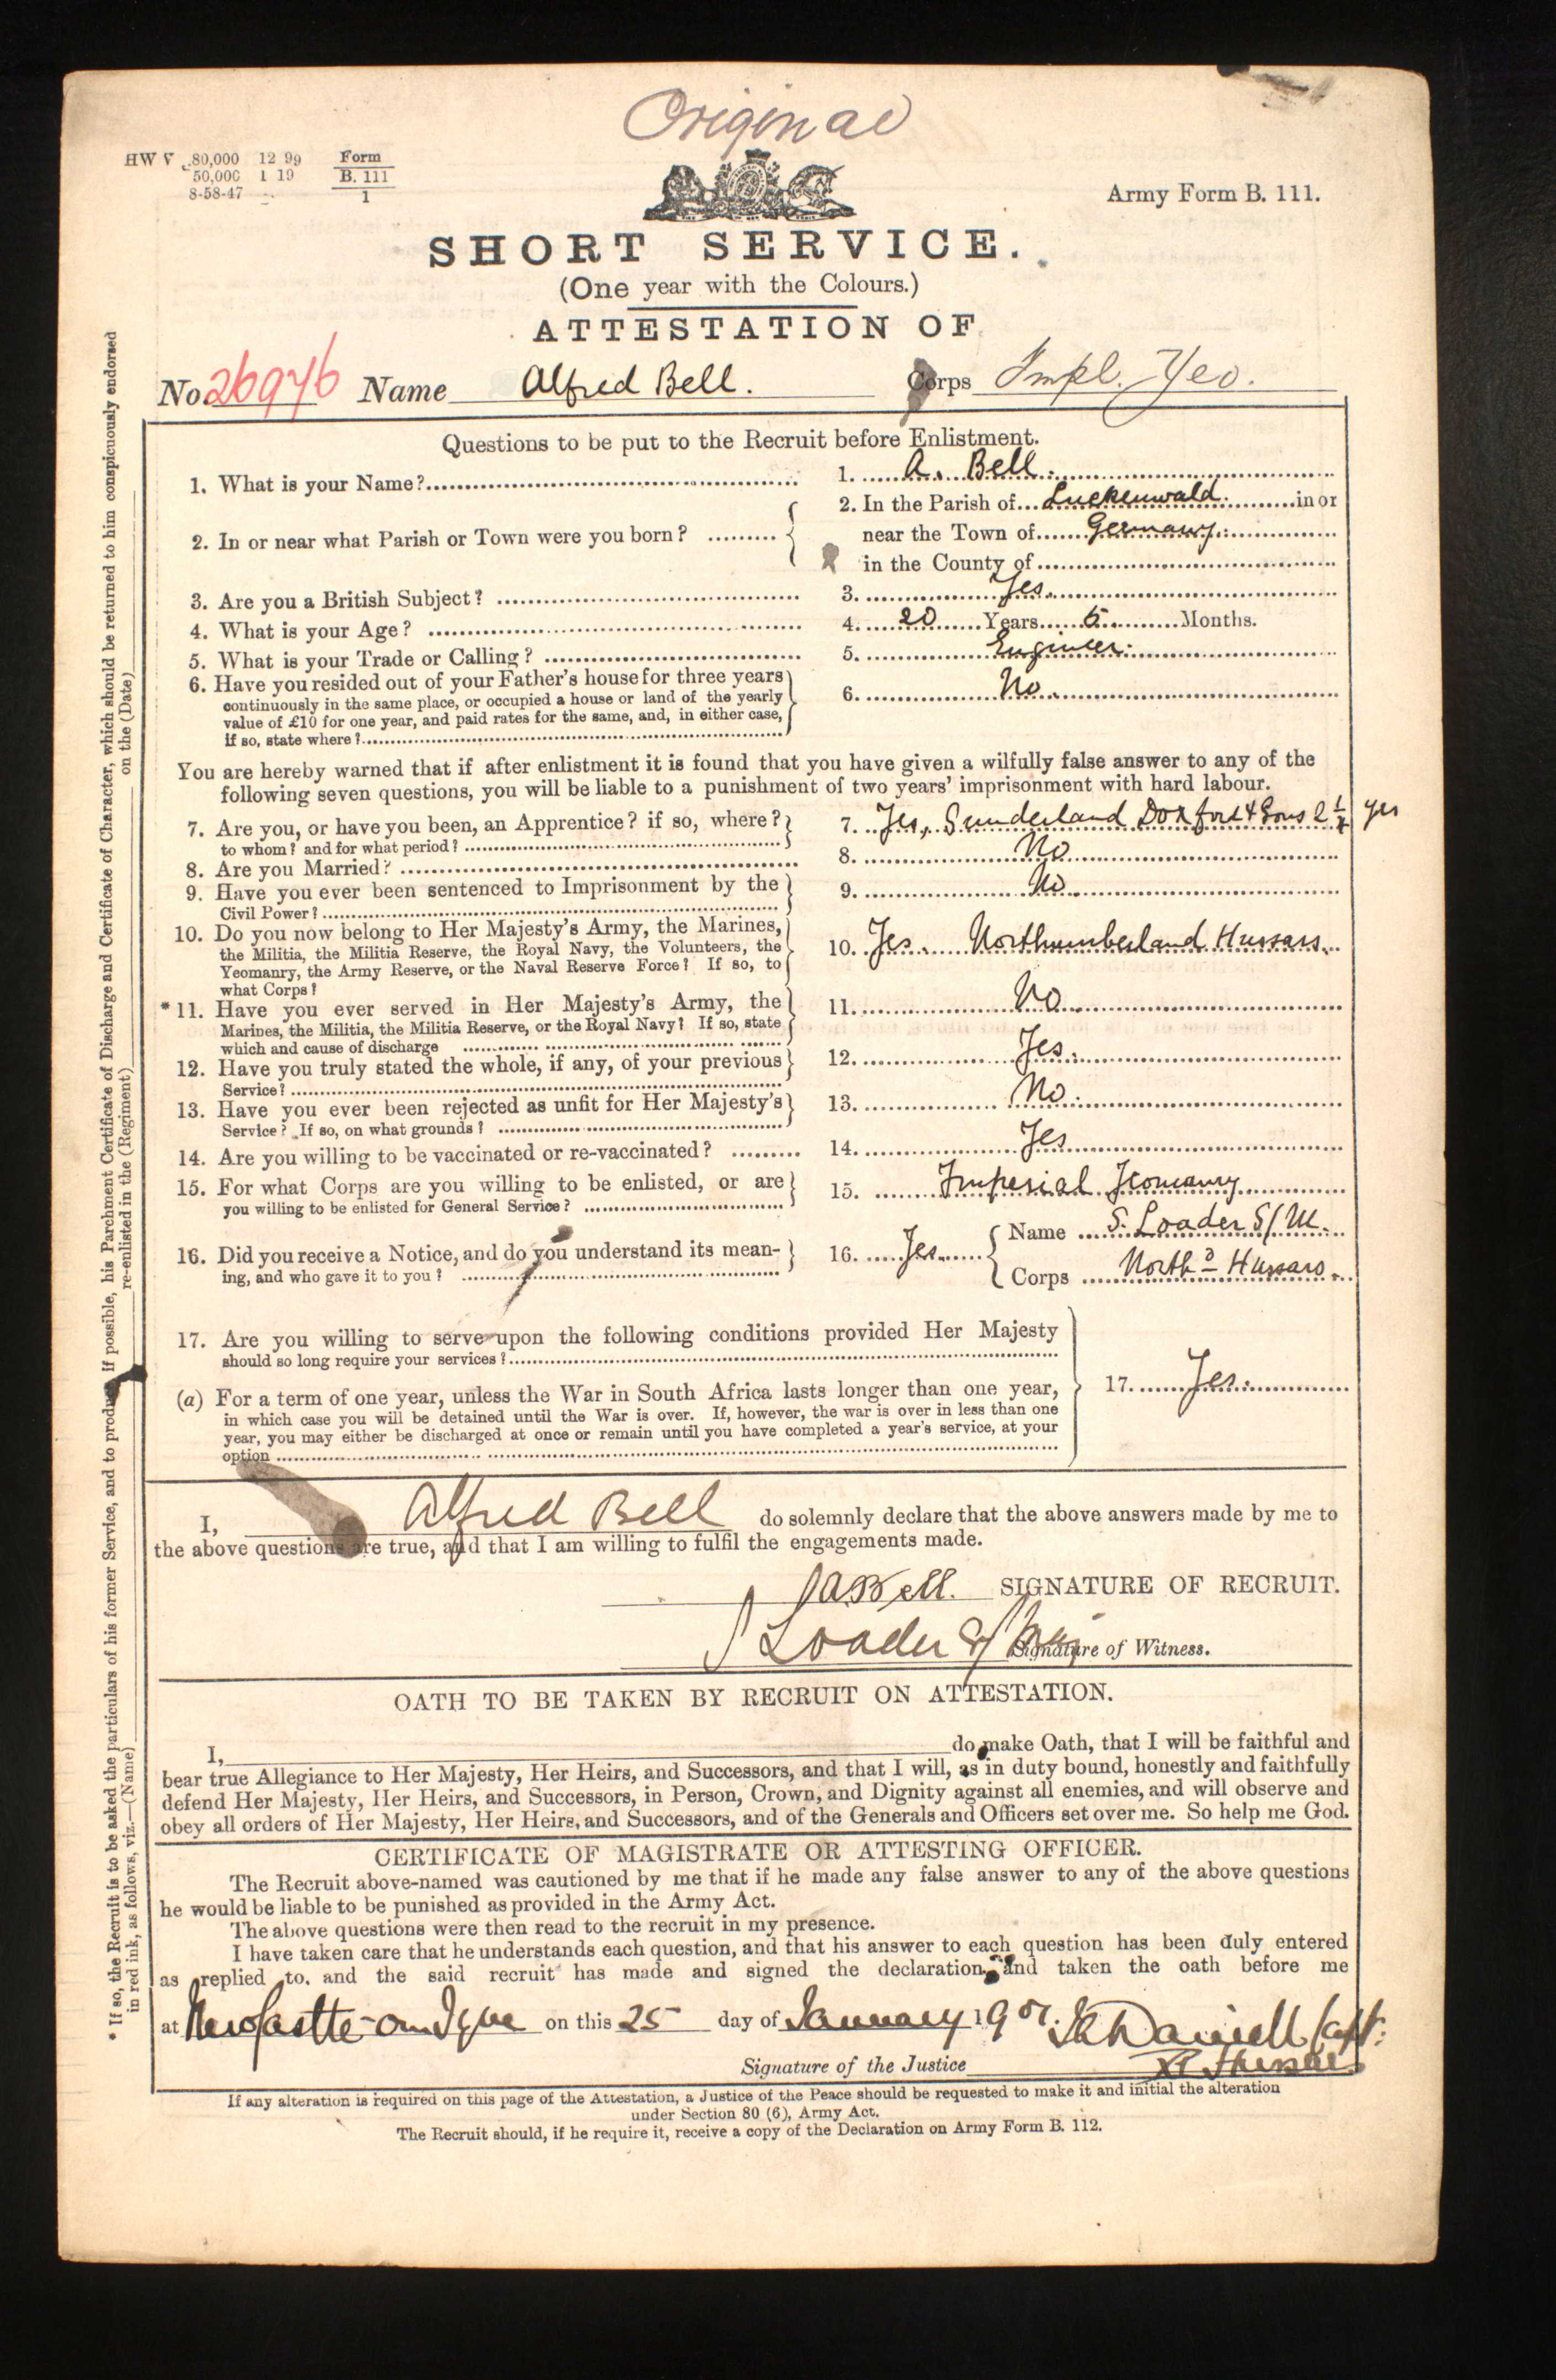 Original
HW V 80,000 12 99 Form
50,000 1 19 B. 111
8-58-47 1
Army Form B. 111.
SHORT SERVICE.
(One year with the Colours.)
ATTESTATION OF
No. 26976 Name Alfred Bell. Corps Impl. Yeo.
Questions to be put to the Recruit before Enlistment.
1. What is your Name? 1. A. Bell.
2. In or near what Parish or Town were you born? 2. In the Parish of Luckenwald in or
near the Town of Germany
in the County of
3. Are you a British Subject? 3. Yes.
4. What is your Age? 4. 20 Years 6 Months.
5. What is your Trade or Calling? 5. Engineer.
6. Have you resided out of your Father's house for three years 6. No.
continuously in the same place, or occupied a house or land of the yearly
value of £10 for one year, and paid rates for the same, and, in either case,
if so, state where?
You are hereby warned that if after enlistment it is found that you have given a wilfully false answer to any of the
following seven questions, you will be liable to a punishment of two years' imprisonment with hard labour.
7. Are you, or have you been, an Apprentice? if so, where? 7. Yes, Sunderland Doxford & Sons 2 ½ yrs
to whom? and for what period?
8. Are you Married? 8. No
9. Have you ever been sentenced to Imprisonment by the 9. No
Civil Power?
10. Do you now belong to Her Majesty's Army, the Marines, 10. Yes. Northumberland Hussars.
the Militia, the Militia Reserve, the Royal Navy, the Volunteers, the
Yeomanry, the Army Reserve, or the Naval Reserve Force? If so, to
what Corps?
* 11. Have you ever served in Her Majesty's Army, the 11. No
Marines, the Militia, the Militia Reserve, or the Royal Navy? If so, state
which and cause of discharge
12. Have you truly stated the whole, if any, of your previous 12. Yes.
Service?
13. Have you ever been rejected as unfit for Her Majesty's 13. No.
Service? If so, on what grounds?
14. Are you willing to be vaccinated or re-vaccinated? 14. Yes
15. For what Corps are you willing to be enlisted, or are 15. Imperial Yeomanry
you willing to be enlisted for General Service?
16. Did you receive a Notice, and do you understand its mean- 16. Yes Name S. Loader S/M.
ing, and who gave it to you? Corps North'd Hussars.
17. Are you willing to serve upon the following conditions provided Her Majesty
should so long require your services?
(a) For a term of one year, unless the War in South Africa lasts longer than one year, 17. Yes.
in which case you will be detained until the War is over. If, however, the war is over in less than one
year, you may either be discharged at once or remain until you have completed a year's service, at your
option
I, Alfred Bell do solemnly declare that the above answers made by me to
the above questions are true, and that I am willing to fulfil the engagements made.
A Bell. SIGNATURE OF RECRUIT.
S Loader S/M Signature of Witness.
OATH TO BE TAKEN BY RECRUIT ON ATTESTATION.
I, do make Oath, that I will be faithful and
bear true Allegiance to Her Majesty, Her Heirs, and Successors, and that I will, as in duty bound, honestly and faithfully
defend Her Majesty, Her Heirs, and Successors, in Person, Crown, and Dignity against all enemies, and will observe and
obey all orders of Her Majesty, Her Heirs, and Successors, and of the Generals and Officers set over me. So help me God.
CERTIFICATE OF MAGISTRATE OR ATTESTING OFFICER.
The Recruit above-named was cautioned by me that if he made any false answer to any of the above questions
he would be liable to be punished as provided in the Army Act.
The above questions were then read to the recruit in my presence.
I have taken care that he understands each question, and that his answer to each question has been duly entered
as replied to, and the said recruit has made and signed the declaration, and taken the oath before me
at Newcastle-on-Tyne on this 25 day of January 1901. Daniell Capt:
Signature of the Justice
If any alteration is required on this page of the Attestation, a Justice of the Peace should be requested to make it and initial the alteration
under Section 80 (6), Army Act.
The Recruit should, if he require it, receive a copy of the Declaration on Army Form B. 112.
* If so, the Recruit is to be asked the particulars of his former Service, and to produce, if possible, his Parchment Certificate of Discharge and Certificate of Character, which should be returned to him conspicuously endorsed
in red ink, as follows, viz.—(Name) re-enlisted in the (Regiment) on the (Date)